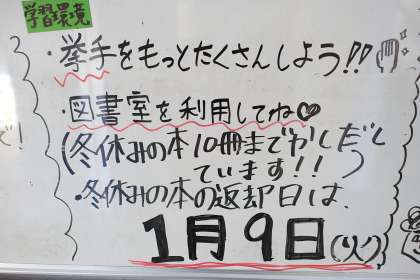 学習環境
・挙手をもっとたくさんしよう!!
・図書室を利用してね♡
(冬休みの本10冊までかしだし
ています!!)
・冬休みの本の返却日は、
1月9日(火)
で!